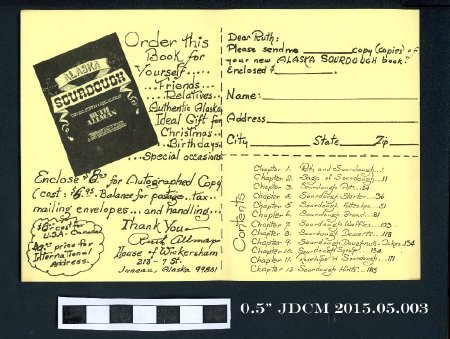 ALASKA
SOURDOUGH
RUTH
ALLMAN
Order this
Book for
Yourself.....
...Friends
...Relatives...
Authentic Alaska
Ideal Gift for
Christmas...
Birthdays
...Special occasions
Enclose for Autographed Copy
(cost: Balance for postage..tax..
mailing envelopes...and handling...
Thank You
Ruth Allman
House of Wickersham
213 - 7 St.
Juneau, Alaska 99801
cost for
U.S.A. - Canada
price for
International
Address.
Dear Ruth:
Please send me ________ copy (copies) of
your new ALASKA SOURDOUGH book.
Enclosed $________.
Name:
Address
City State Zip
Contents
Chapter 1. Ruth and Sourdough...1
Chapter 2. Saga of Sourdough...11
Chapter 3. Sourdough Pot...
Chapter 4. Sourdough Starter...36
Chapter 5. Sourdough
Chapter 6. Sourdough Bread...81
Chapter 7. Sourdough Waffles...123
Chapter 8. Sourdough Desserts...118
Chapter 9. Sourdough Doughnuts-Cakes.134
Chapter 10. Sourdough
Chapter 11. Sourdough...171
Chapter 12. Sourdough Hints...185
0.5" JDCM 2015.05.003